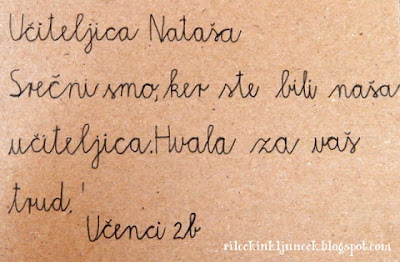 Učiteljica Nataša
Srečni smo, ker ste bili naša
učiteljica. Hvala za vaš
trud.'
Učenci 2b
rilcekinkljuncek.blogspot.com